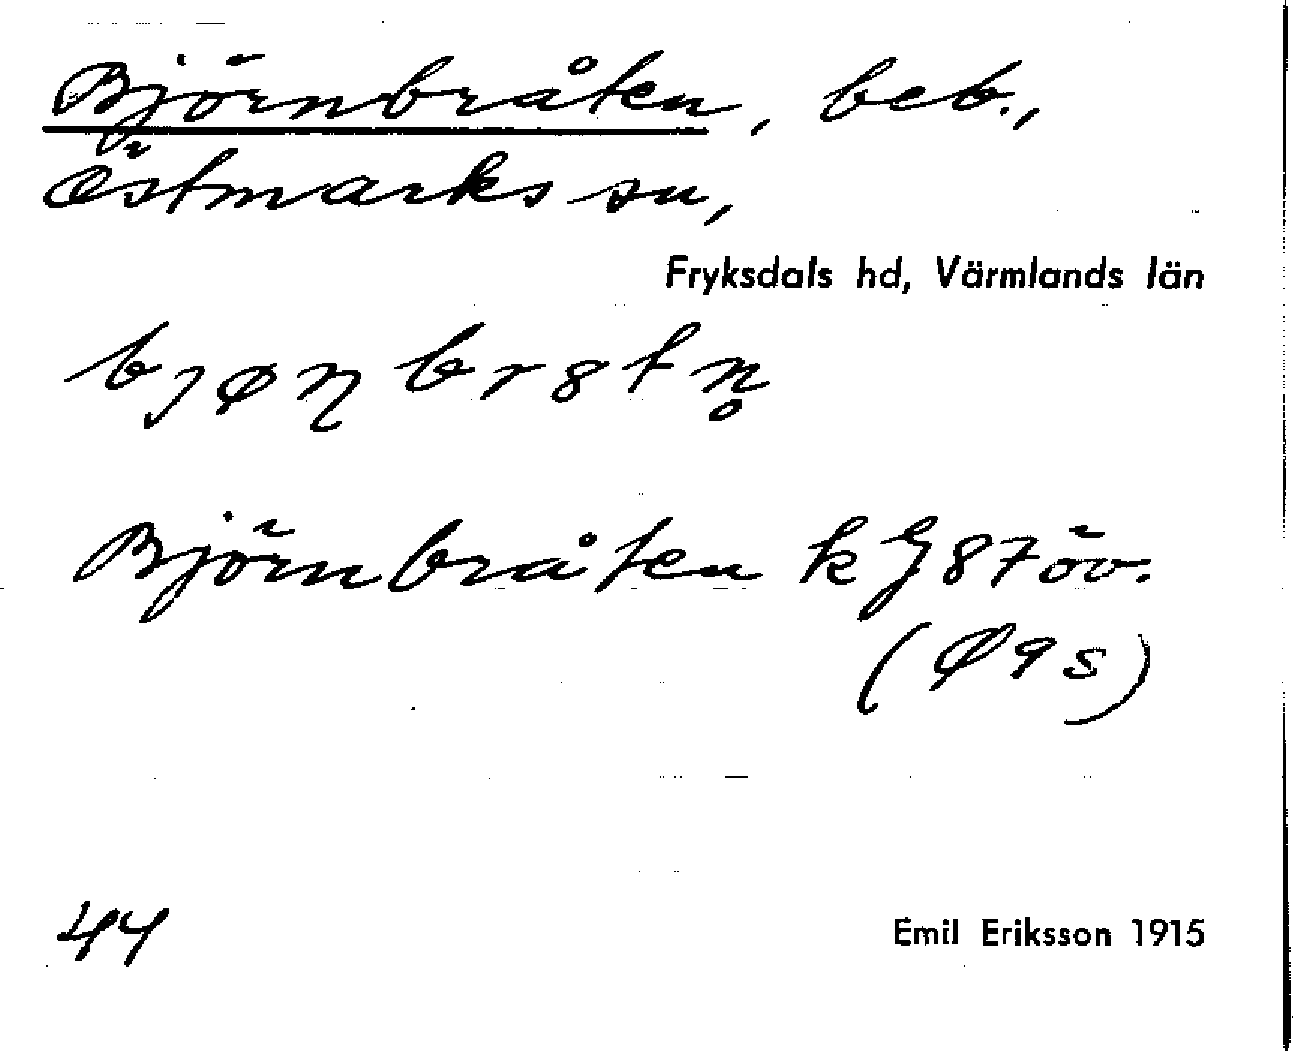 Björnbråten, beb.,
Östmarks sn,
Fryksdals hd, Värmlands län
bjøɳbr8tn̥
Björnbråten k G87öv.
(Ø9s)
44
Emil Eriksson 1915